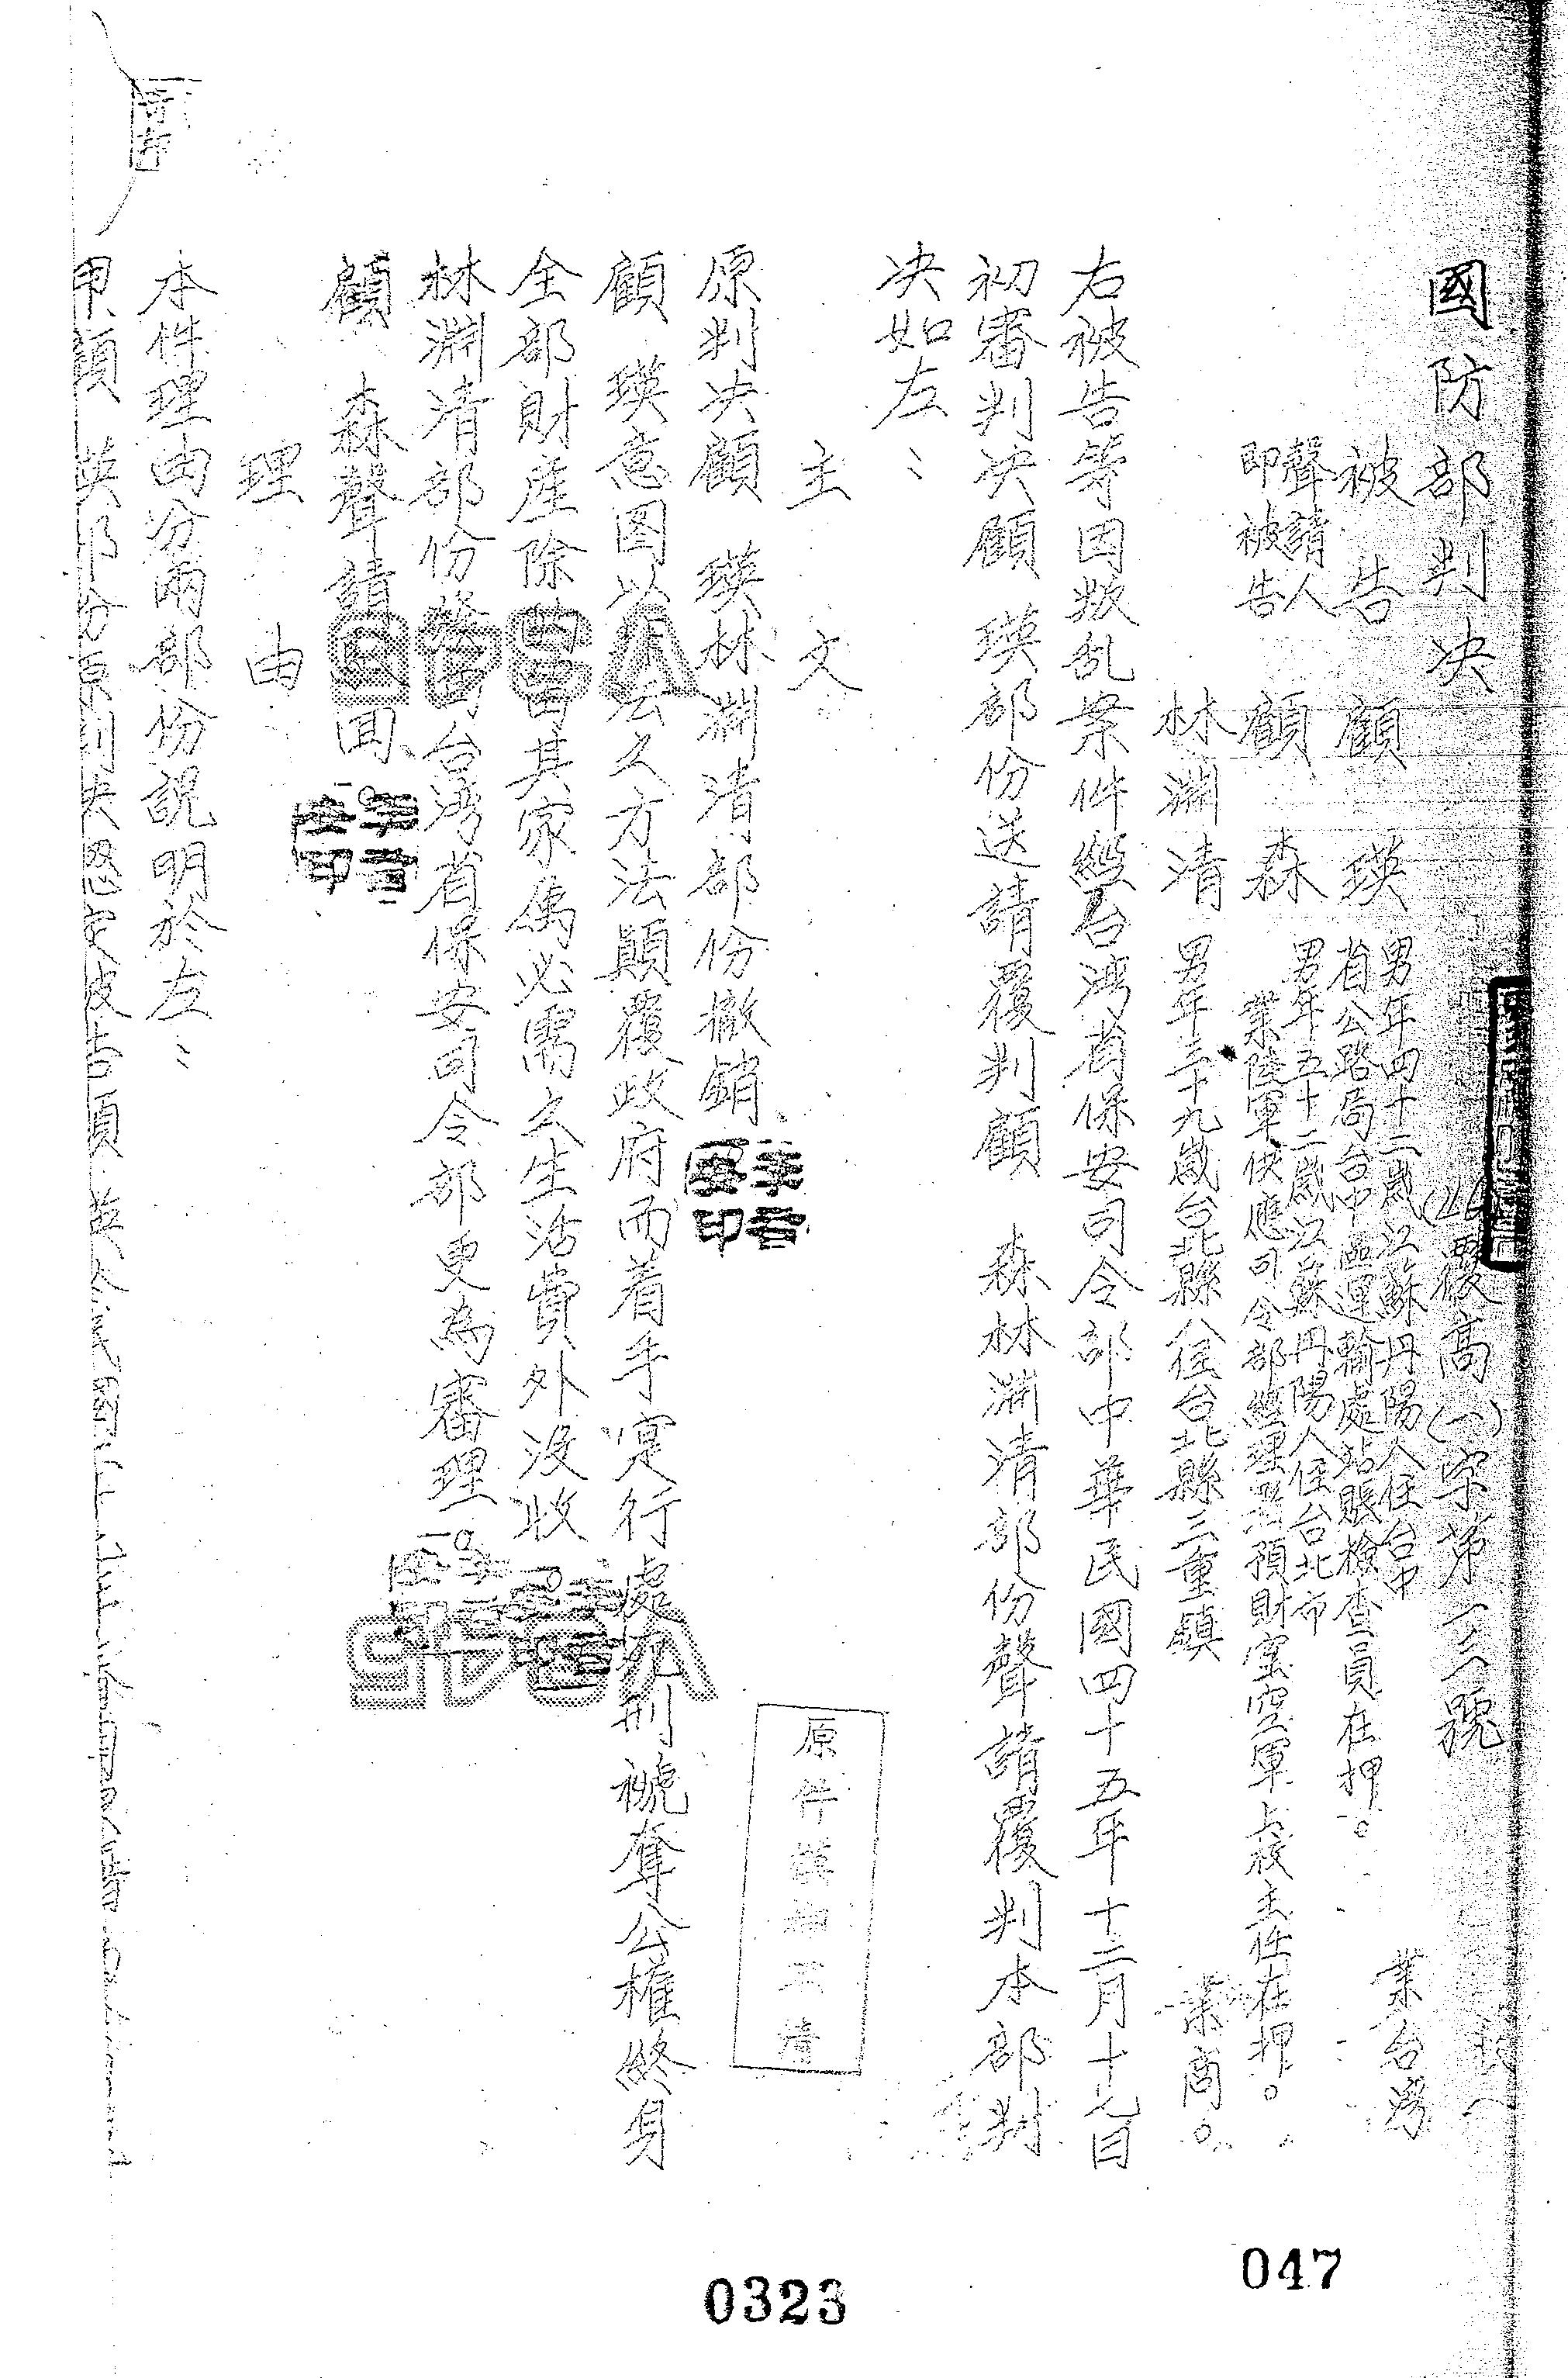 國防部判決
覆高(一)字第三號
被告 顧 瑛 男年四十二歲江蘇丹陽人住台中
業台灣
省公路局台中區運輸處站賬檢查員在押。
聲請人
即被告 顧 森 男年五十二歲江蘇丹陽人住台北市
業陸軍供應司令部經理署預財室空軍上校主任在押。
林淵清 男年三十九歲台北縣人住台北縣三重鎮
業商。
右被告等因叛乱案件經台灣省保安司令部中華民國四十五年十二月十七日
初審判決顧 瑛部份送請覆判顧 森林淵清部份聲請覆判本部判
決如左：
主文
原判決顧 瑛林淵清部份撤銷、
顧 瑛意图以非法之方法顛覆政府而着手実行處死刑褫奪公權終身
全部財產除酌留其家屬必需之生活費外沒收
林淵清部份發回台灣省保安司令部更為審理。
顧 森聲請駁回、
理由
本件理由分兩部份說明於左：
甲顧 瑛部份原判決認定被告顧 瑛
原件模糊不清
0323
047